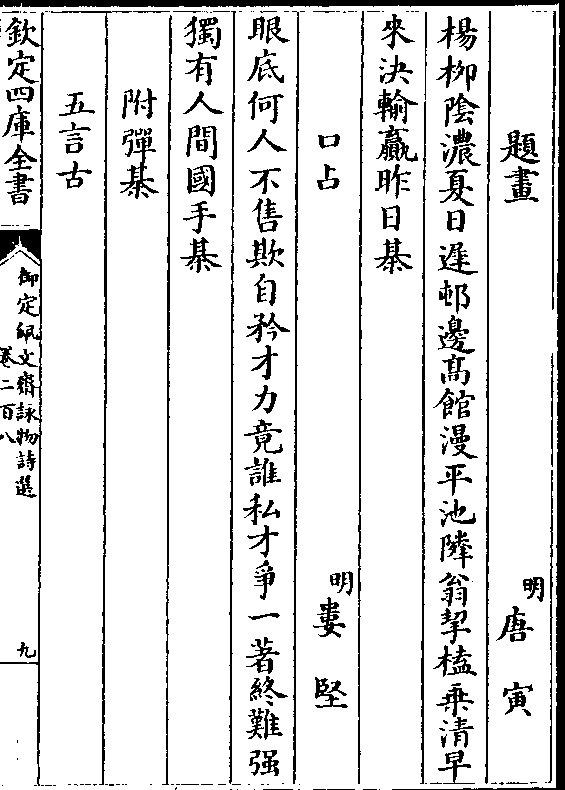 題畫
明唐寅
楊柳陰濃夏日遲邨邊髙館漫平池隣翁挈榼乗清早
來決輸贏昨日棊
口占
明婁堅
眼底何人不售欺自矜才力竟誰私才爭一著終難强
獨有人間國手棊
附彈棊
五言古
欽定四庫全書
御定佩文齋詠物詩選
卷二百八
九